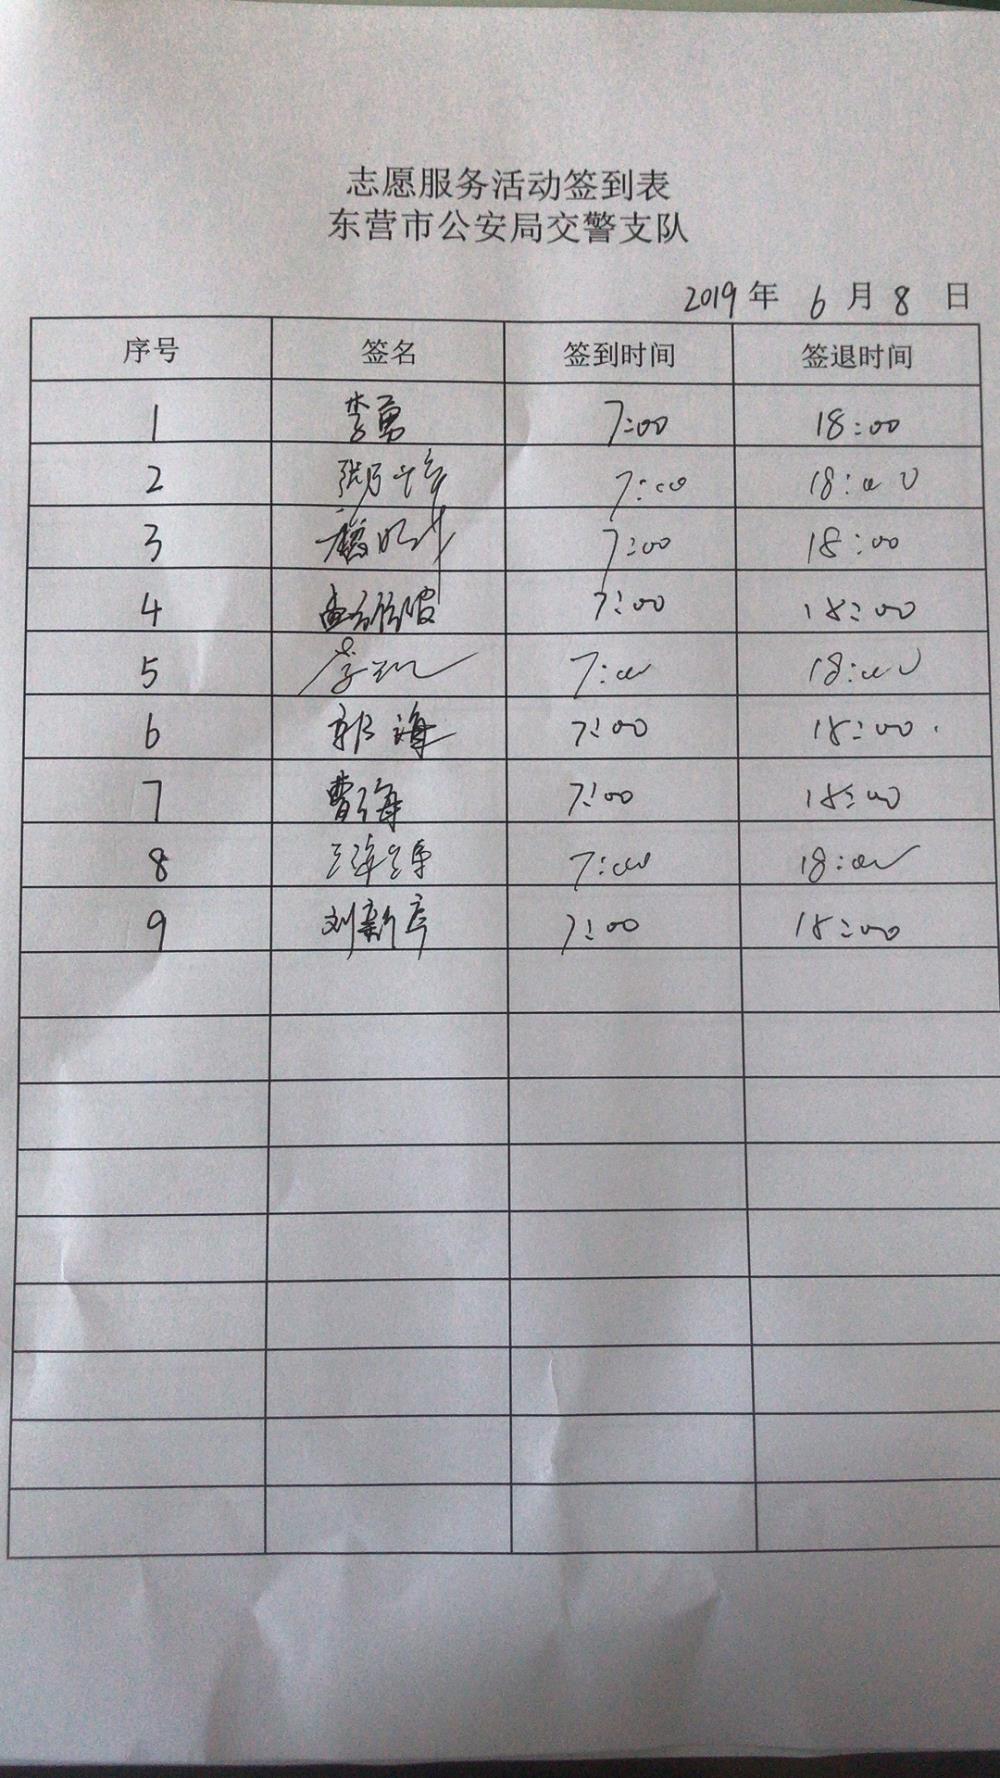 志愿服务活动签到表
东营市公安局交警支队
2019年 6月8日
序号 签名 签到时间 签退时间
1 李勇 7:00 18:00
2 7:00 18:00
3 7:00 18:00
4 7:00 18:00
5 7:00 18:00
6 郭海 7:00 18:00
7 曹海 7:00 18:00
8 7:00 18:00
9 刘新亭 7:00 18:00